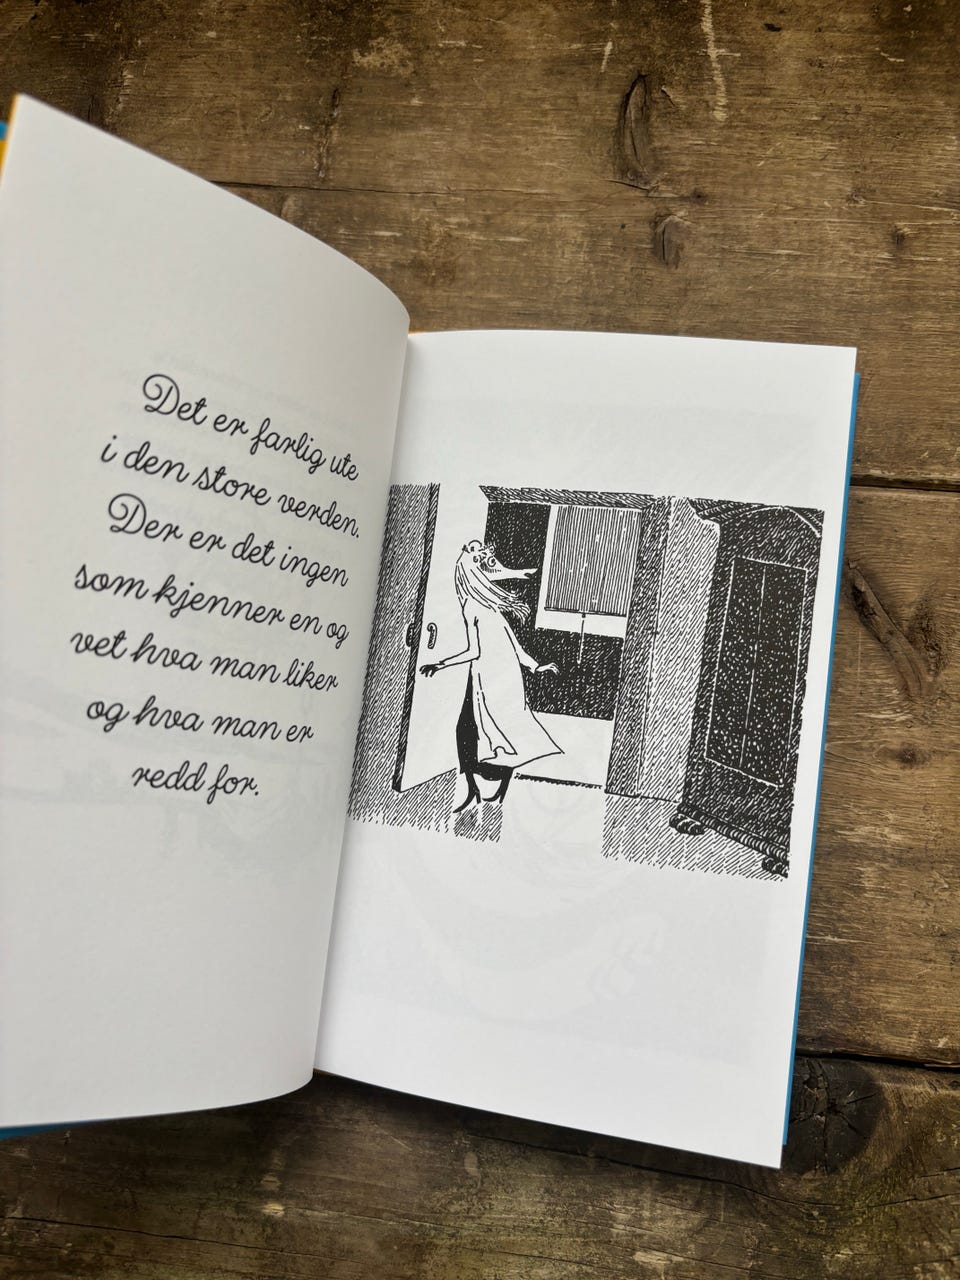 Det er farlig ute
i den store verden.
Der er det ingen
som kjenner en og
vet hva man liker
og hva man er
redd for.